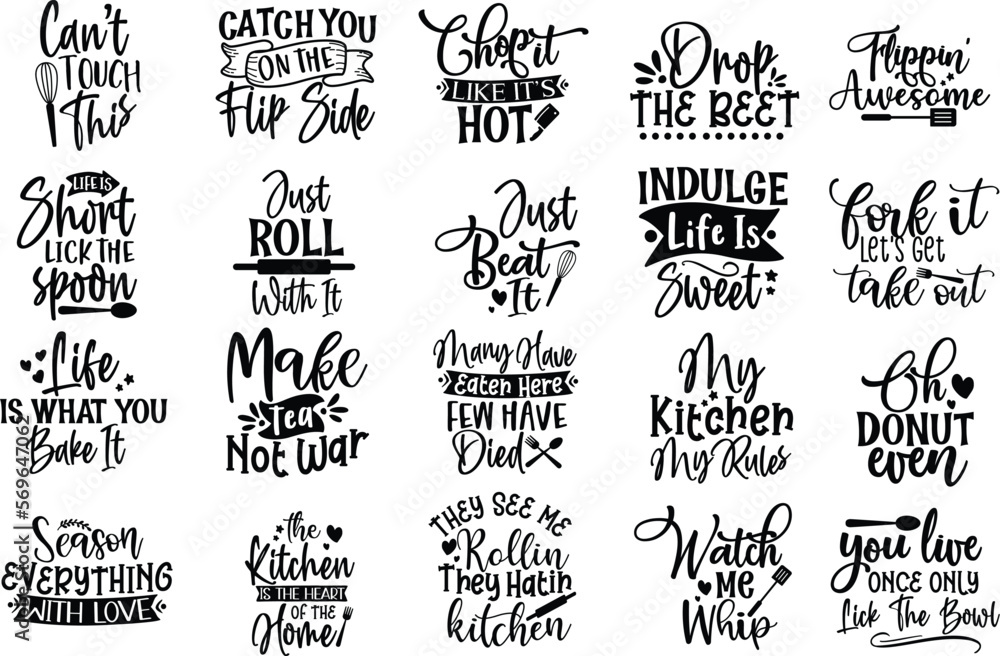 Can't
TOUCH
This
CATCH YOU
ON THE
Flip Side
Chop it
LIKE IT'S
HOT
Drop
THE BEET
Flippin'
Awesome
LIFE IS
Short
LICK THE
spoon
Just
ROLL
With It
Just
Beat
It
INDULGE
Life Is
Sweet
fork it
LET'S GET
take out
Life
IS WHAT YOU
Bake It
Make
tea
Not War
Many Have
Eaten Here
FEW HAVE
Died
My
Kitchen
My Rules
Oh
DONUT
even
Season
EVERYTHING
WITH LOVE
the
Kitchen
IS THE HEART
OF THE
Home
THEY SEE ME
Rollin
They Hatin
kitchen
Watch
ME
Whip
you live
ONCE ONLY
Lick The Bowl
Adobe Stock | #569647062